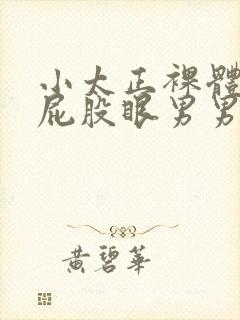 小大正裸體
屁股眼男男
黃碧華